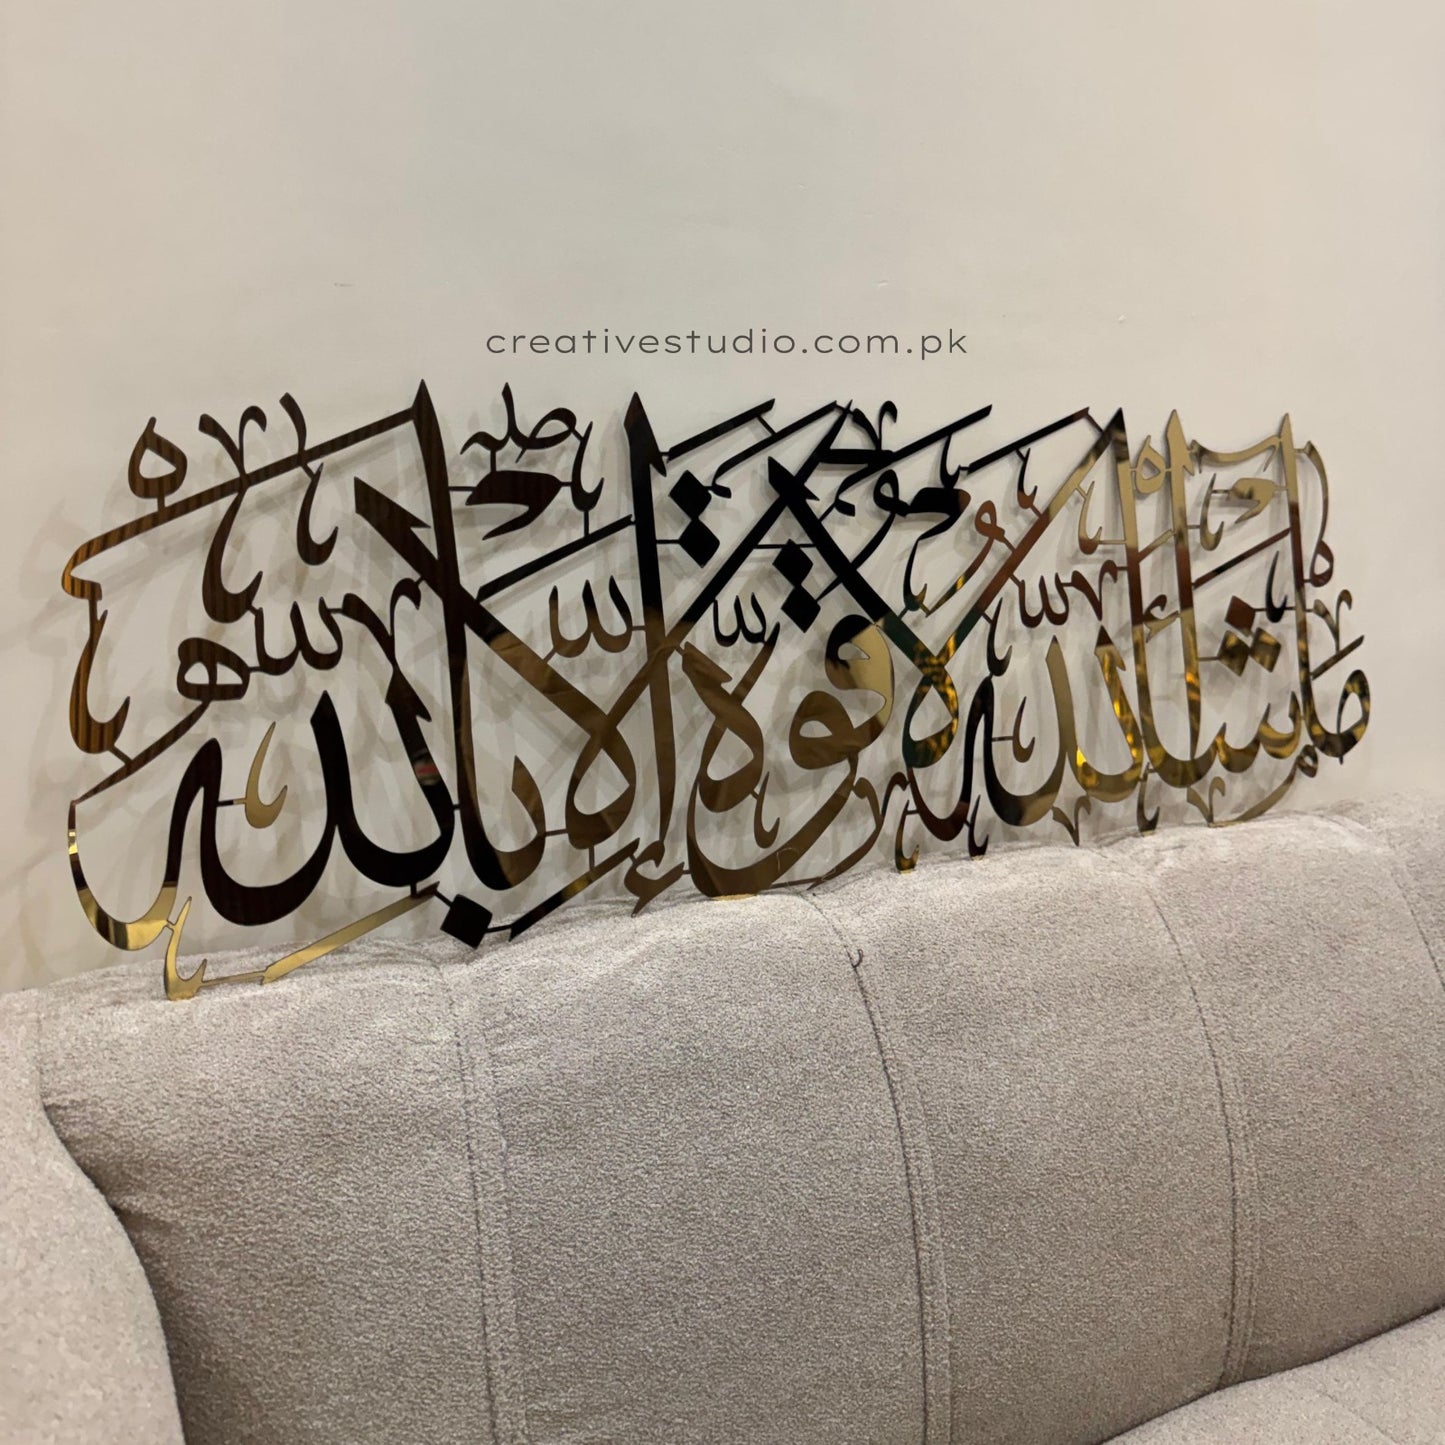 creativestudio.com.pk
ماشاء الله لا قوة إلا بالله